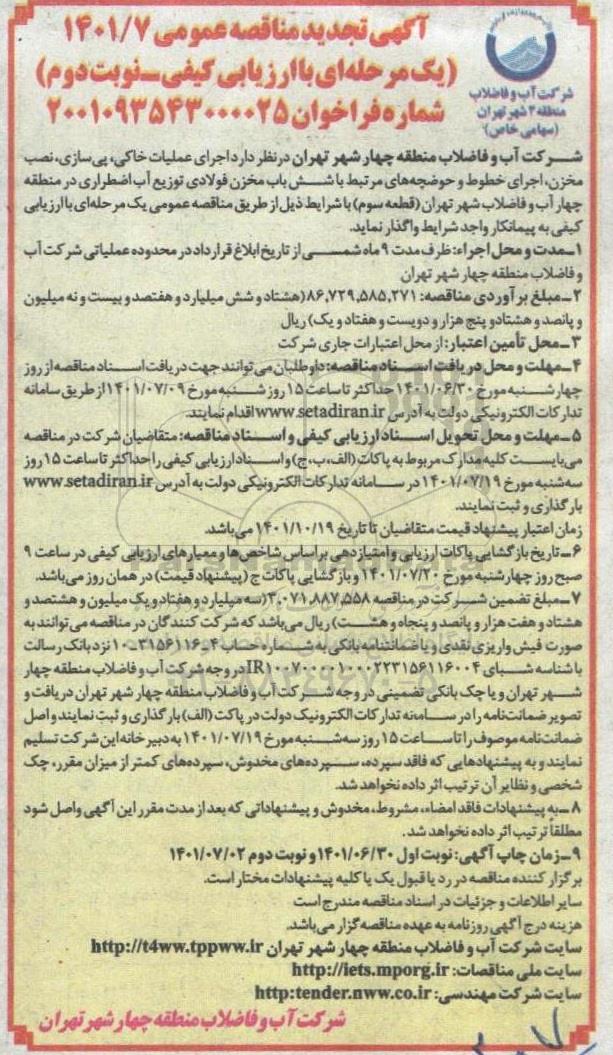 آگهی تجدید مناقصه عمومی ۱۴۰۱/۷
(یک مرحله‌ای با ارزیابی کیفی ـ نوبت دوم)
شماره فراخوان ۲۰۰۱۰۹۳۵۴۳۰۰۰۰۲۵
شرکت آب و فاضلاب
منطقه ۴ شهر تهران
(سهامی خاص)
شرکت آب و فاضلاب منطقه چهار شهر تهران در نظر دارد اجرای عملیات خاکی، پی سازی، نصب
مخزن، اجرای خطوط و حوضچه‌های مرتبط با شش باب مخزن فولادی توزیع آب اضطراری در منطقه
چهار آب و فاضلاب شهر تهران (قطعه سوم) با شرایط ذیل از طریق مناقصه عمومی یک مرحله‌ای با ارزیابی
کیفی به پیمانکار واجد شرایط واگذار نماید.
۱ـ مدت و محل اجراء: ظرف مدت ۹ ماه شمسی از تاریخ ابلاغ قرارداد در محدوده عملیاتی شرکت آب
و فاضلاب منطقه چهار شهر تهران
۲ـ مبلغ برآوردی مناقصه: ۸۶,۷۲۹,۵۸۵,۲۷۱ (هشتاد و شش میلیارد و هفتصد و بیست و نه میلیون
و پانصد و هشتاد و پنج هزار و دویست و هفتاد و یک) ریال
۳ـ محل تأمین اعتبار: از محل اعتبارات جاری شرکت
۴ـ مهلت و محل دریافت اسناد مناقصه: داوطلبان می‌توانند جهت دریافت اسناد مناقصه از روز
چهارشنبه مورخ ۱۴۰۱/۰۶/۳۰ حداکثر تا ساعت ۱۵ روز شنبه مورخ ۱۴۰۱/۰۷/۰۹ از طریق سامانه
تدارکات الکترونیکی دولت به آدرس www.setadiran.ir اقدام نمایند.
۵ـ مهلت و محل تحویل اسناد ارزیابی کیفی و اسناد مناقصه: متقاضیان شرکت در مناقصه
می‌بایست کلیه مدارک مربوط به پاکات (الف، ب، ج) و اسناد ارزیابی کیفی را حداکثر تا ساعت ۱۵ روز
سه‌شنبه مورخ ۱۴۰۱/۰۷/۱۹ در سامانه تدارکات الکترونیکی دولت به آدرس www.setadiran.ir
بارگذاری و ثبت نمایند.
زمان اعتبار پیشنهاد قیمت متقاضیان تا تاریخ ۱۴۰۱/۱۰/۱۹ می‌باشد.
۶ـ تاریخ بازگشایی پاکات ارزیابی و امتیازدهی بر اساس شاخص‌ها و معیارهای ارزیابی کیفی در ساعت ۹
صبح روز چهارشنبه مورخ ۱۴۰۱/۰۷/۲۰ و بازگشایی پاکات ج (پیشنهاد قیمت) در همان روز می‌باشد.
۷ـ مبلغ تضمین شرکت در مناقصه ۳,۰۷۱,۸۸۷,۵۵۸ (سه میلیارد و هفتاد و یک میلیون و هشتصد و
هشتاد و هفت هزار و پانصد و پنجاه و هشت) ریال می‌باشد که شرکت کنندگان در مناقصه می‌توانند به
صورت فیش واریزی نقدی و یا ضمانتنامه بانکی به شماره حساب ۱۰۰۳۱۵۶۱۱۶۰۴ نزد بانک رسالت
با شناسه شبای IR۱۰۰۷۰۰۰۰۱۰۰۰۲۲۳۱۵۶۱۱۶۰۰۴ در وجه شرکت آب و فاضلاب منطقه چهار
شهر تهران و یا چک بانکی تضمینی در وجه شرکت آب و فاضلاب منطقه چهار شهر تهران دریافت و
تصویر ضمانت‌نامه را در سامانه تدارکات الکترونیک دولت در پاکت (الف) بارگذاری و ثبت نمایند و اصل
ضمانت‌نامه موصوف را تا ساعت ۱۵ روز سه‌شنبه مورخ ۱۴۰۱/۰۷/۱۹ به دبیرخانه این شرکت تسلیم
نمایند و به پیشنهادهایی که فاقد سپرده، سپرده‌های مخدوش، سپرده‌های کمتر از میزان مقرر، چک
شخصی و نظایر آن ترتیب اثر داده نخواهد شد.
۸ـ به پیشنهادات فاقد امضاء، مشروط، مخدوش و پیشنهاداتی که بعد از مدت مقرر این آگهی واصل شود
مطلقاً ترتیب اثر داده نخواهد شد.
۹ـ زمان چاپ آگهی: نوبت اول ۱۴۰۱/۰۶/۳۰ و نوبت دوم ۱۴۰۱/۰۷/۰۲
برگزار کننده مناقصه در رد یا قبول یک یا کلیه پیشنهادات مختار است.
سایر اطلاعات و جزئیات در اسناد مناقصه مندرج است
هزینه درج آگهی روزنامه به عهده مناقصه‌گزار می‌باشد.
سایت شرکت آب و فاضلاب منطقه چهار شهر تهران http://t4ww.tppww.ir
سایت ملی مناقصات: http://iets.mporg.ir
سایت شرکت مهندسی: http:tender.nww.co.ir
شرکت آب و فاضلاب منطقه چهار شهر تهران